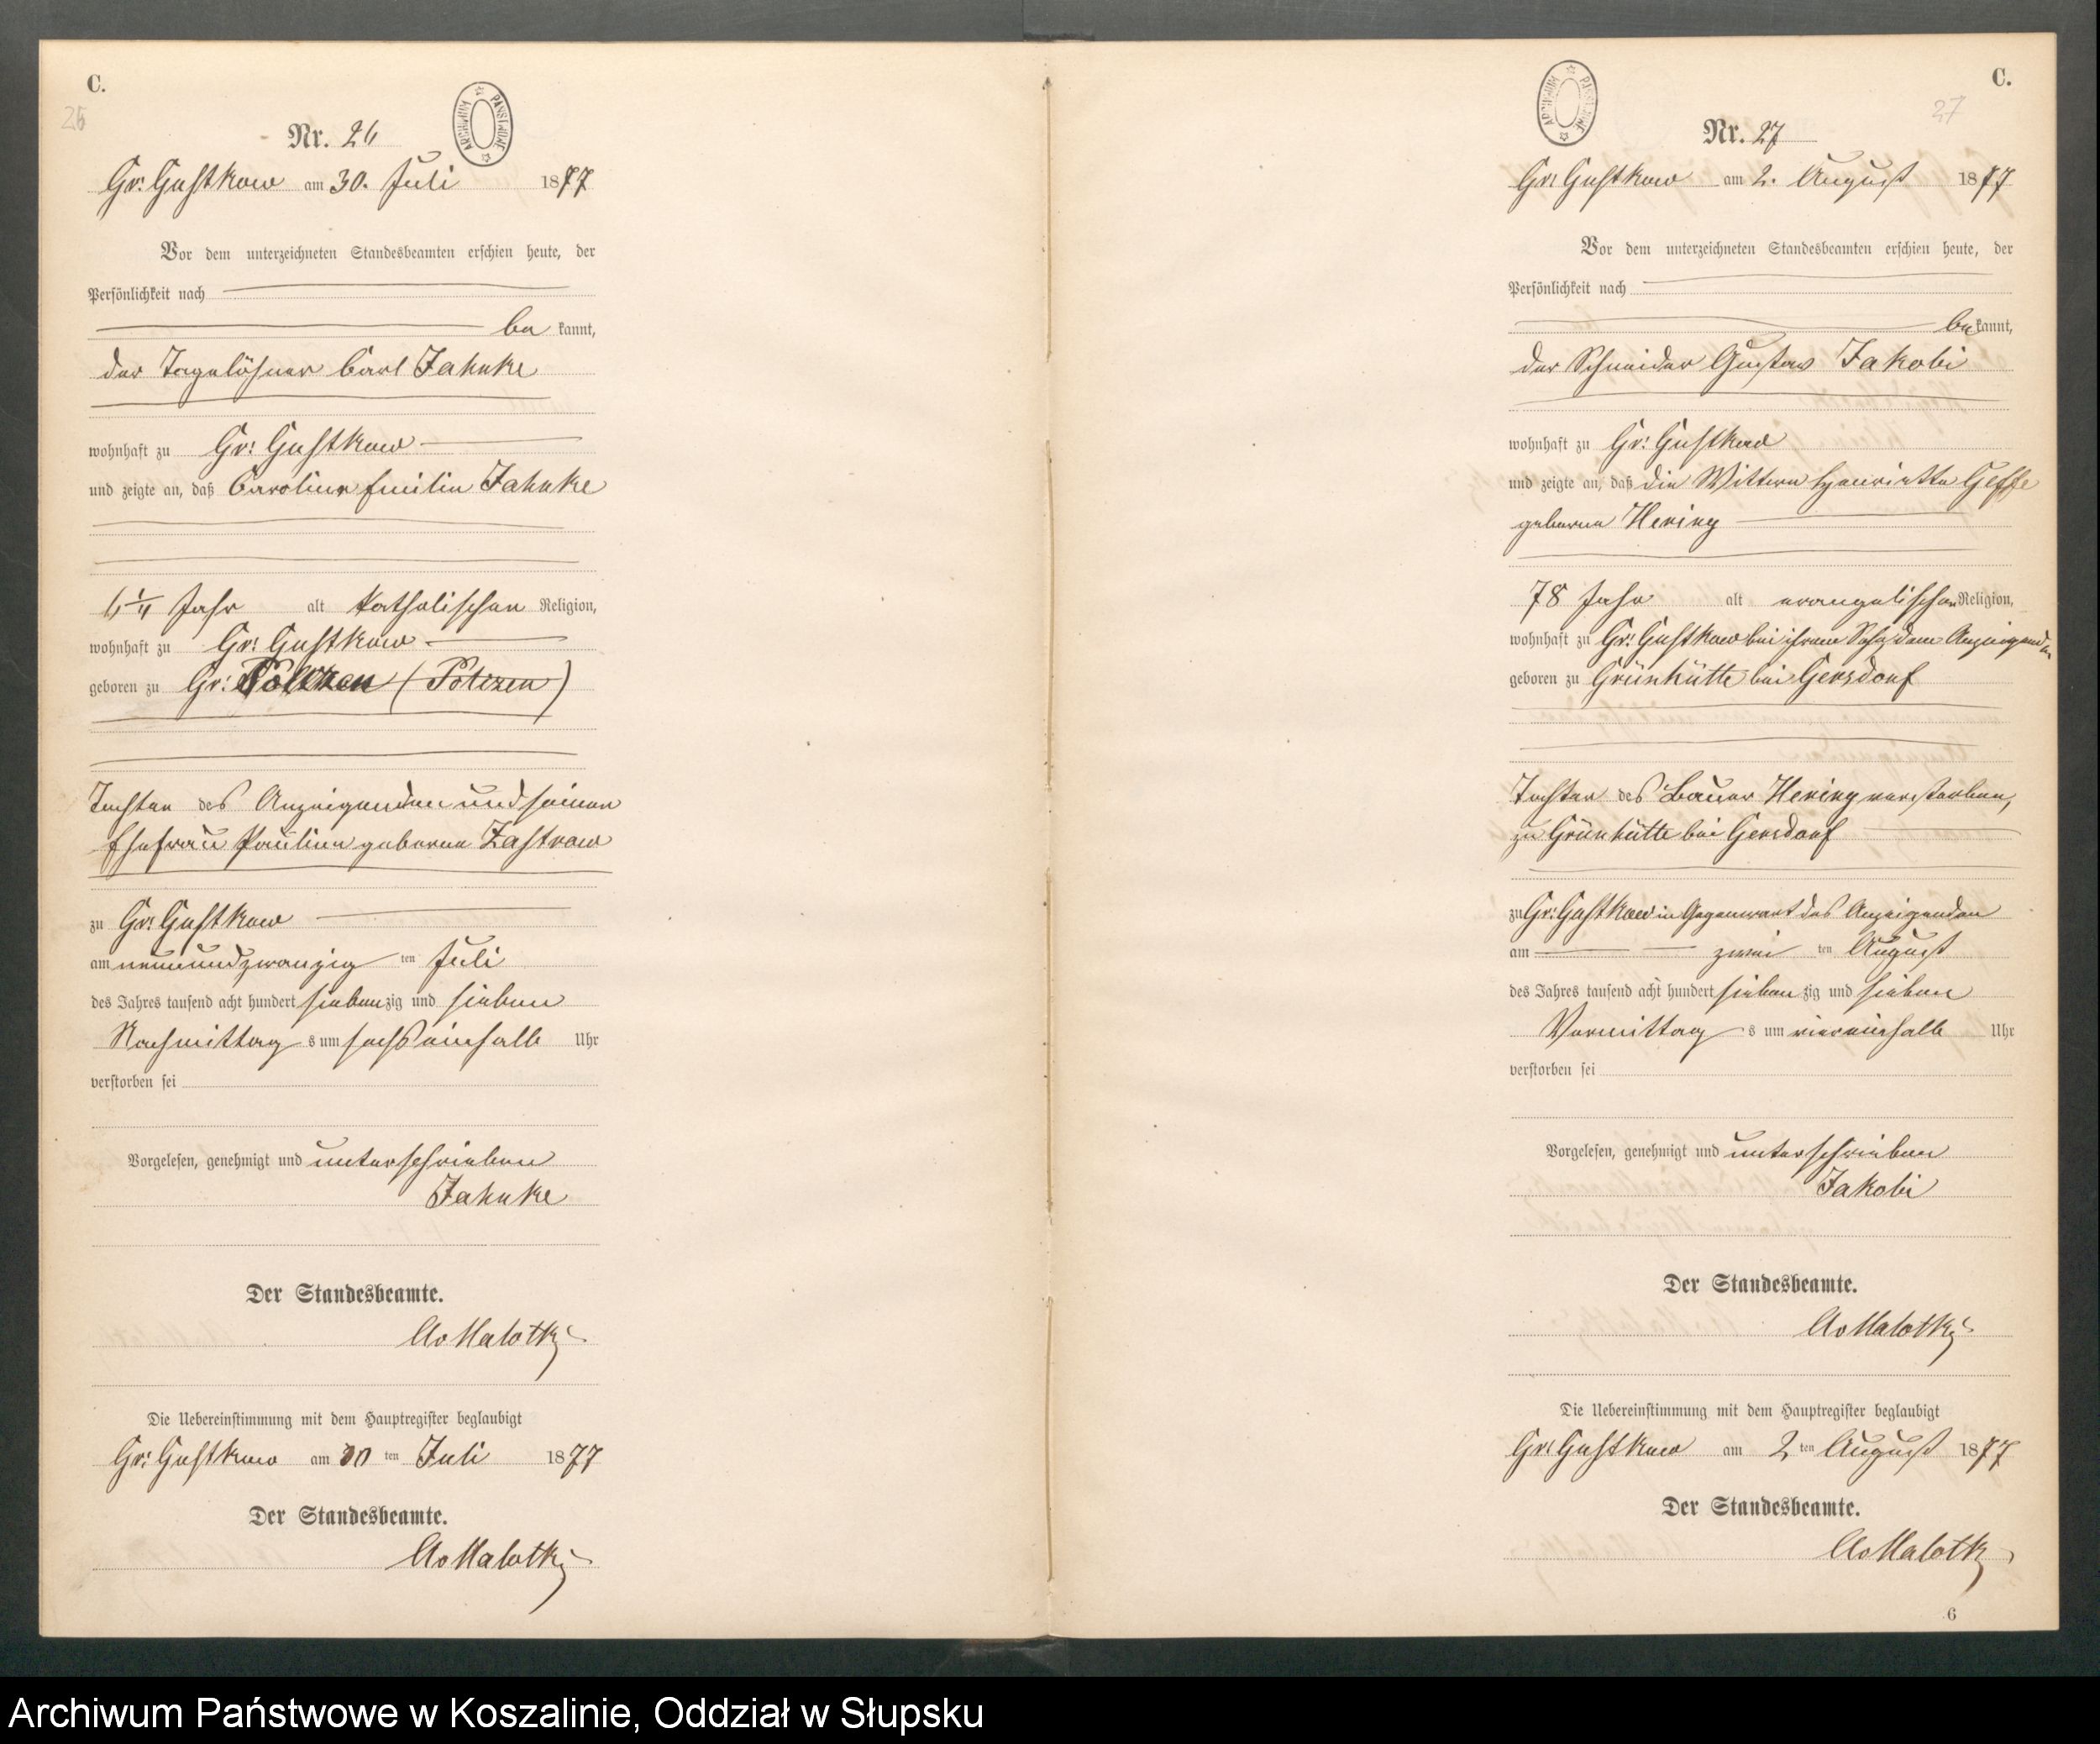 C.
26
Nr. 26
ARCHIWUM PAŃSTWOWE
Gr: Gustkow am 30. Juli 1877
Vor dem unterzeichneten Standesbeamten erschien heute, der
Persönlichkeit nach
be kannt,
der Tagelöhner Carl Jahnke
wohnhaft zu Gr: Gustkow
und zeigte an, daß Caroline Emilie Jahnke
1/4 Jahr alt katholischen Religion,
wohnhaft zu Gr: Gustkow
geboren zu Gr: (Potzen)
Tochter des Anzeigenden und seiner
Ehefrau Pauline geborene Zastrow
zu Gr: Gustkow
am neunundzwanzig ten Juli
des Jahres tausend acht hundert sieben zig und sieben
Nachmittag s um sechseinhalb Uhr
verstorben sei
Vorgelesen, genehmigt und unterschrieben
Jahnke
Der Standesbeamte.
AvMalotky
Die Uebereinstimmung mit dem Hauptregister beglaubigt
Gr: Gustkow am 30 ten Juli 1877
Der Standesbeamte.
AvMalotky
C.
27
Nr. 27
ARCHIWUM PAŃSTWOWE
Gr: Gustkow am 2. August 1877
Vor dem unterzeichneten Standesbeamten erschien heute, der
Persönlichkeit nach
be kannt,
der Schneider Gustav Jakobi
wohnhaft zu Gr: Gustkow
und zeigte an, daß die Wittwe Henriette
geborene Hering
78 Jahr alt evangelischen Religion,
wohnhaft zu Gr: Gustkow bei ihrem dem Anzeigenden
geboren zu Grünhütte bei Gersdorf
Tochter des Bauer Hering verstorben,
zu Grünhütte bei Gersdorf
zu Gr: Gustkow in Gegenwart des Anzeigenden
am zwei ten August
des Jahres tausend acht hundert sieben zig und sieben
Vormittag s um viereinhalb Uhr
verstorben sei
Vorgelesen, genehmigt und unterschrieben
Jakobi
Der Standesbeamte.
AvMalotky
Die Uebereinstimmung mit dem Hauptregister beglaubigt
Gr: Gustkow am 2 ten August 1877
Der Standesbeamte.
AvMalotky
6
Archiwum Państwowe w Koszalinie, Oddział w Słupsku